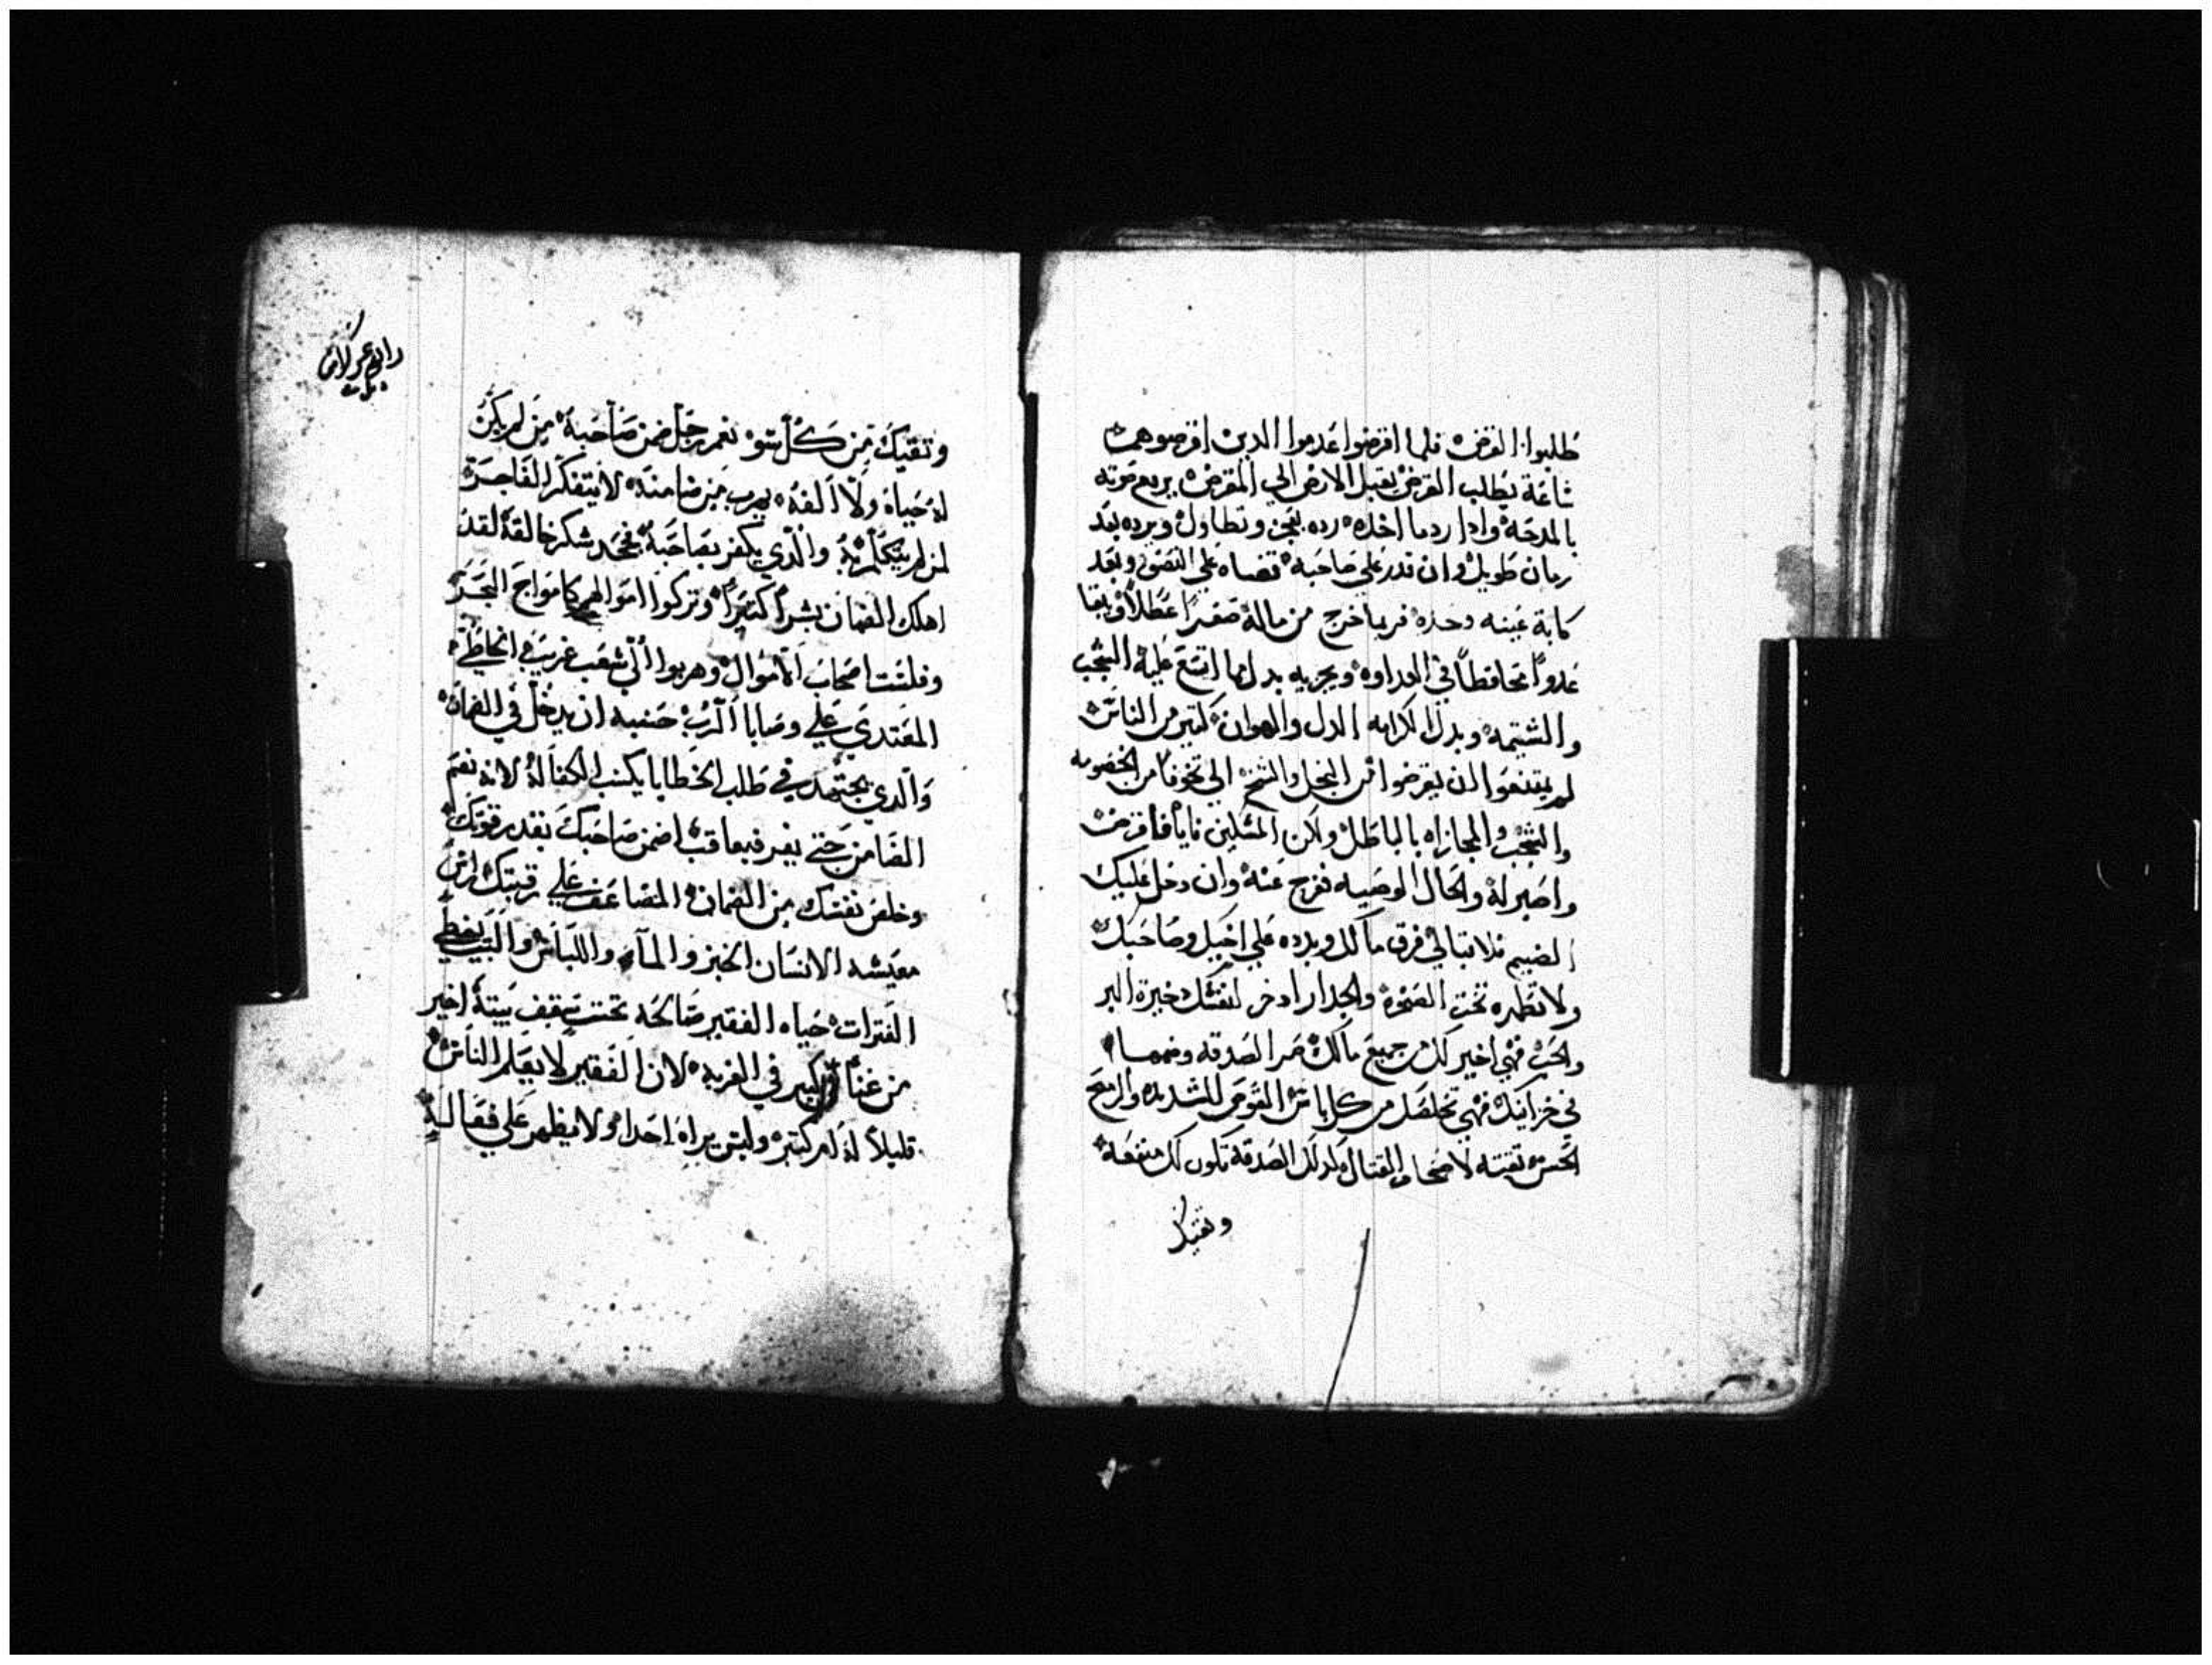 طلبوا القرض فلما اقرضوا عدموا الدين اقرضوهم
ساعة يطلب القرض يقبل الارض الي المقرض يرفع صوته
بالمدحة وادا رد ما اخده رده بعجز وتطاول ويرده بعد
زمان طويل وان قدر علي صاحبه قضاه علي النصف وبعد
كابة عينه وحده فربما خرج من ماله صفرا عطلا ويقا
عدوا محافظا في العداوه ويجزيه بدل ما اتسع عليه الشجب
والشتيمه وبدل الكرامه الدل والهوان كتير من الناس
لم يمتنعوا ان يقرضوا من البخل والشح الي تخوفا من الخصومه
والشجب والمجازاه بالباطل ولكن المسكين فاقرض
واصبر له والحال الوصيه تفرج عنه وان دخل عليك
الضيم فلا تبالي فرق مالك وبدده علي اخيك وصاحبك
ولا تطمره تحت الصخرة والجدار ادخر لنفسك دخيرة البر
والحب فهي اخير لك من جميع مالك صر الصدقه وضمها
في خزاينك فهي تخلصك من كل باس القوس الشديده والرمح
الحسن تقيته لاصحاب القتال كدلك الصدقة تكون لك منفعة
وتقيك
رابع عر كراس
وتقيك من كل سو نعم رجل ضمن صاحبه من لم يكن
له حياه ولا الفه يهرب من ضامنه لا يتفكر الفاجرة
لمن لم يتكلم به والدي يكفر بصاحبه فجحد شكر خالقه لقد
اهلك الضمان بشرا كتيرا وتركوا اموالهم كامواج البحر
وفلست اصحاب الاموال وهربوا الي شعب غريب الخاطي
المعتدي علي وصايا الرب حسبه ان يدخل في الضمان
والدي يجتهد في طلب الخطايا يكسب الكفالة لانه نعم
الضامن حتي يفر فيعاقب اضمن صاحبك بقدر قوتك
وخلص نفسك من الضمان المضاعف علي رقبتك راس
معيشه الانسان الخبز والما واللباس والبيت يغطي
الفترات حياه الفقير صالحه تحت سقف بيته اخير
من غنا كبير في الغربه لان الفقير لا يعلم الناس
قليلا له ام كتير وليس يراه احدا ولا يظهر علي فعاله